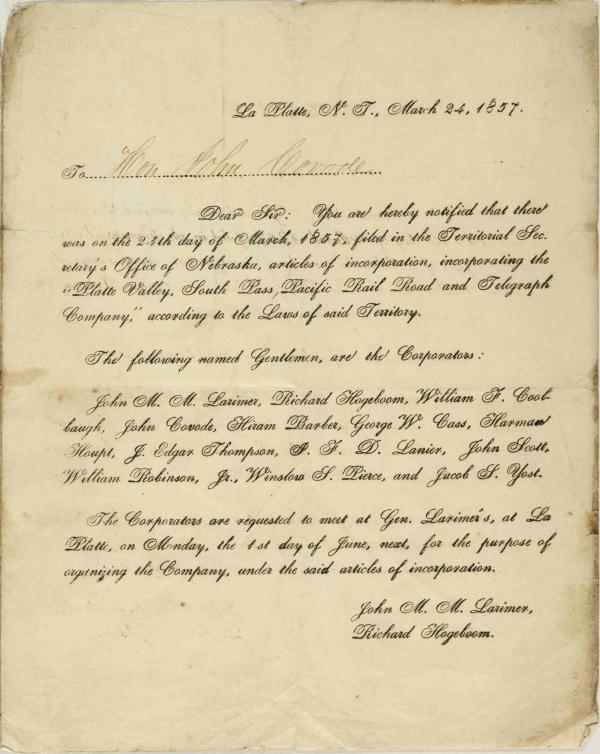 La Platte, N. T., March 24, 1857.
To Hon John Covode
Dear Sir: You are hereby notified that there
was on the 24th day of March, 1857, filed in the Territorial Sec-
retary's Office of Nebraska, articles of incorporation, incorporating the
"Platte Valley, South Pass, Pacific Rail Road and Telegraph
Company," according to the Laws of said Territory.
The following named Gentlemen, are the Corporators:
John M. M. Larimer, Richard Hogeboom, William F. Cool-
baugh, John Covode, Hiram Barber, George W. Cass, Harman
Houpt, J. Edgar Thompson, J. F. D. Lanier, John Scott,
William Robinson, Jr., Winslow S. Pierce, and Jacob S. Yost.
The Corporators are requested to meet at Gen. Larimer's, at La
Platte, on Monday, the 1st day of June, next, for the purpose of
organizing the Company, under the said articles of incorporation.
John M. M. Larimer,
Richard Hogeboom.